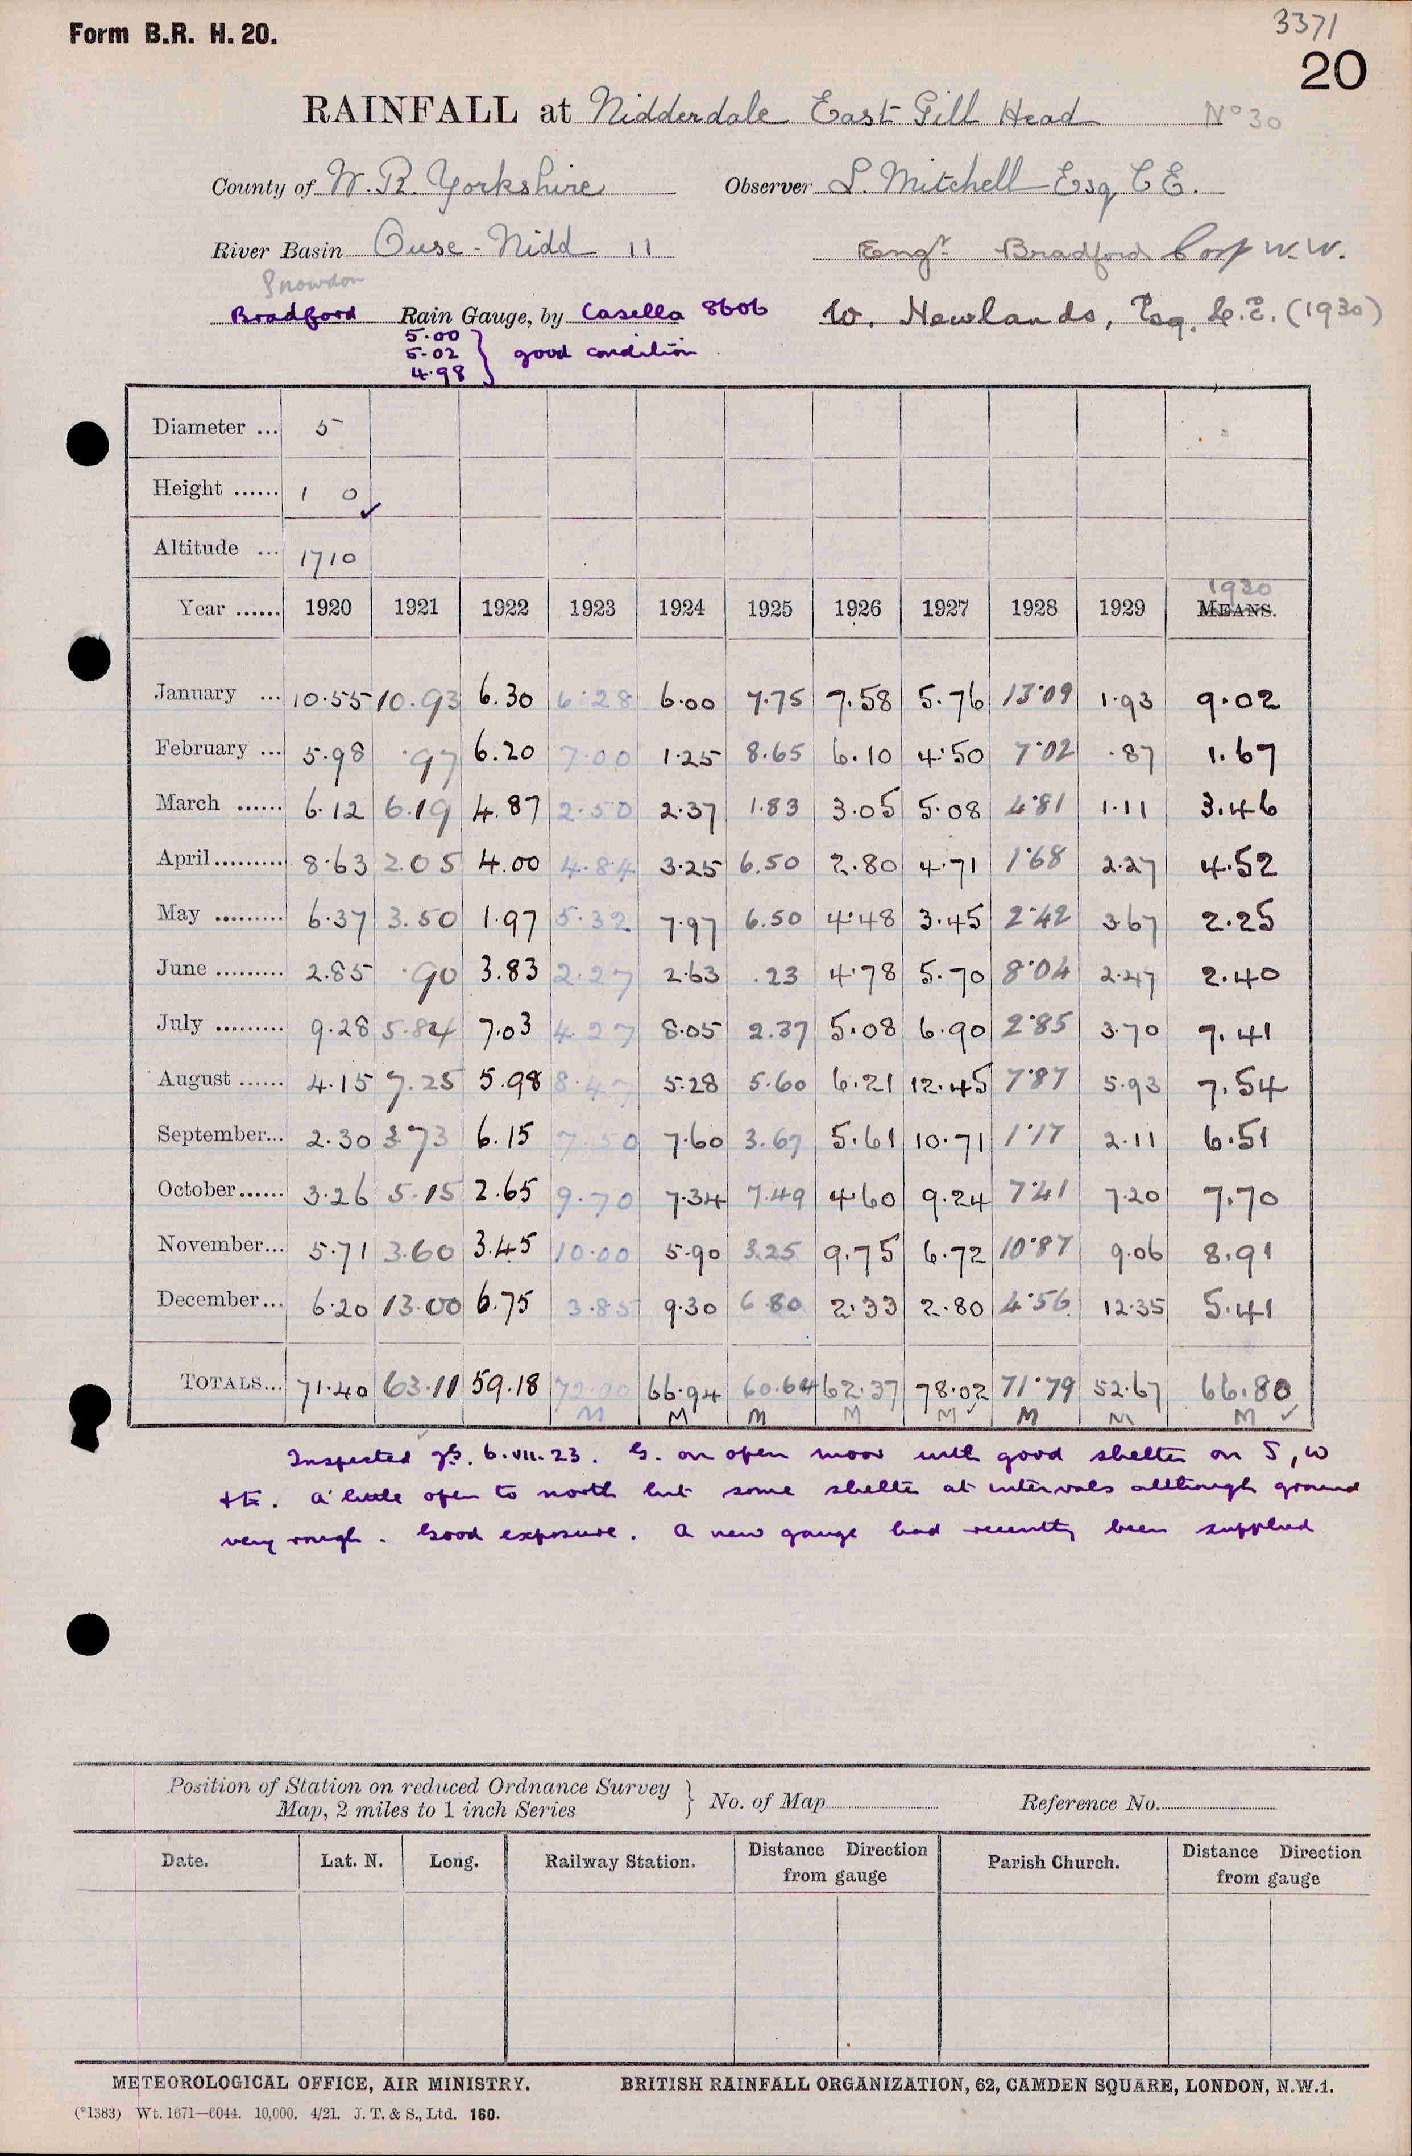 Form B.R. H. 20.
3371
20
RAINFALL at Nidderdale East Gill Head No 30
County of W. R. Yorkshire Observer L. Mitchell Esq C E.
River Basin Ouse - Nidd 11 Engr. Bradford Corp W. W.
Snowdon
Bradford Rain Gauge, by Casella 8606 W. Newlands, Esq. C.E. (1930)
5.00
5.02 } good condition
4.98
Diameter ... 5
Height ...... 1 0 ✓
Altitude ... 1710
1930
Year ...... 1920 1921 1922 1923 1924 1925 1926 1927 1928 1929 MEANS.
January ... 10.55 10.93 6.30 6.28 6.00 7.75 7.58 5.76 13.09 1.93 9.02
February ... 5.98 .97 6.20 7.00 1.25 8.65 6.10 4.50 7.02 .87 1.67
March ...... 6.12 6.19 4.87 2.50 2.37 1.83 3.05 5.08 4.81 1.11 3.46
April ......... 8.63 2.05 4.00 4.84 3.25 6.50 2.80 4.71 1.68 2.27 4.52
May ......... 6.37 3.50 1.97 5.32 7.97 6.50 4.48 3.45 2.42 3.67 2.25
June ......... 2.85 .90 3.83 2.27 2.63 .23 4.78 5.70 8.04 2.47 2.40
July ......... 9.28 5.84 7.03 4.27 8.05 2.37 5.08 6.90 2.85 3.70 7.41
August ...... 4.15 7.25 5.98 8.47 5.28 5.60 6.21 12.45 7.87 5.93 7.54
September... 2.30 3.73 6.15 7.50 7.60 3.67 5.61 10.71 1.17 2.11 6.51
October ...... 3.26 5.15 2.65 9.70 7.34 7.49 4.60 9.24 7.41 7.20 7.70
November... 5.71 3.60 3.45 10.00 5.90 3.25 9.75 6.72 10.87 9.06 8.91
December... 6.20 13.00 6.75 3.85 9.30 6.80 2.33 2.80 4.56 12.35 5.41
TOTALS... 71.40 63.11 59.18 72.00 66.94 60.64 62.37 78.02 71.79 52.67 66.80
M M M M M ✓ M M M ✓
Inspected 6.VII.23. G. on open moor with good shelter on S, W
+ E. A little open to north but some shelter at intervals although ground
very rough. Good exposure. A new gauge had recently been supplied
Position of Station on reduced Ordnance Survey
Map, 2 miles to 1 inch Series } No. of Map Reference No.
Date. Lat. N. Long. Railway Station. Distance Direction from gauge Parish Church. Distance Direction from gauge
METEOROLOGICAL OFFICE, AIR MINISTRY. BRITISH RAINFALL ORGANIZATION, 62, CAMDEN SQUARE, LONDON, N.W.1.
(*1383) Wt. 1671—6044. 10,000. 4/21. J. T. & S., Ltd. 160.